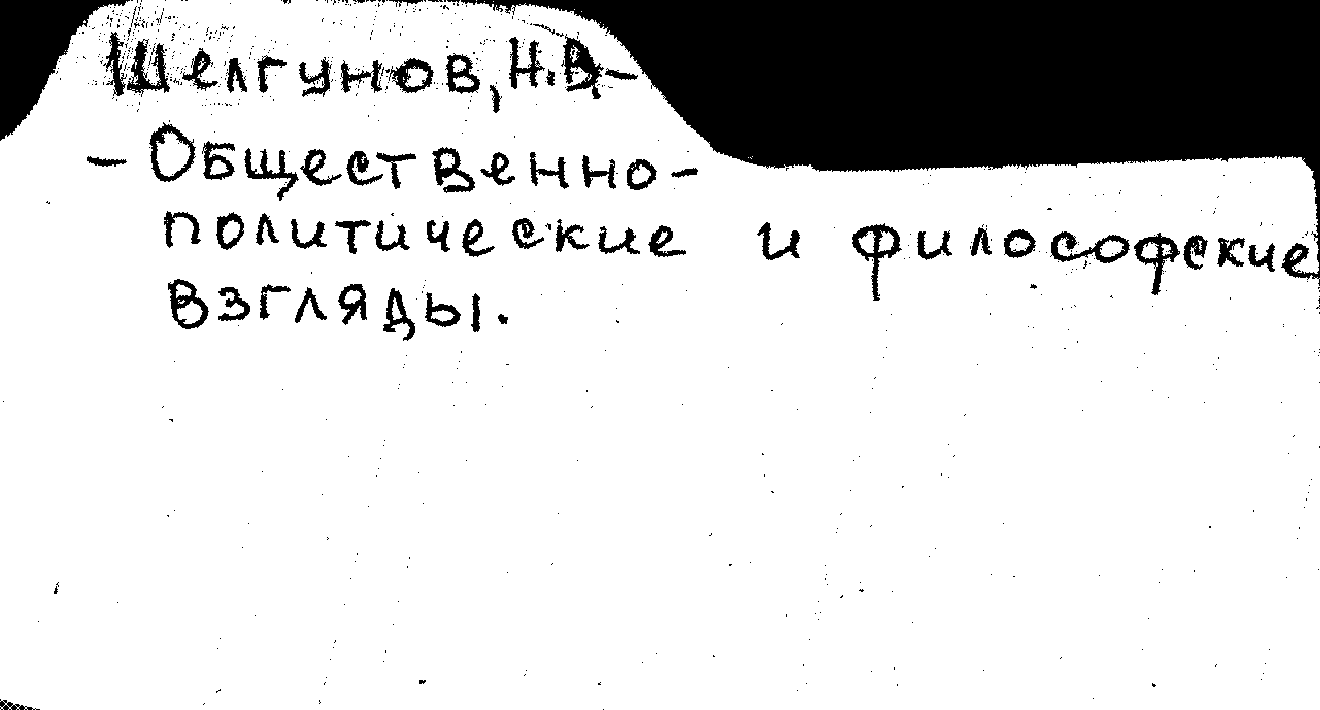 Шелгунов, Н.В –
– Общественно-
политические и философские
взгляды.